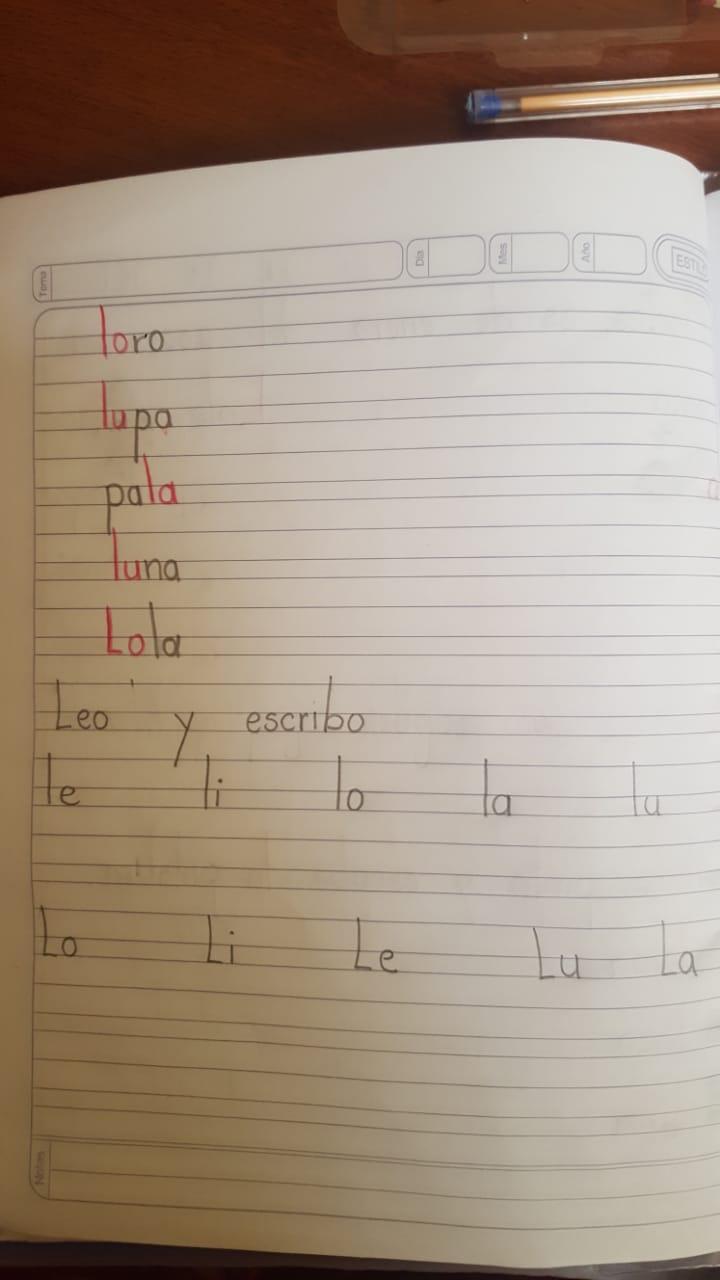 Tema Día Mes Año
loro
lupa
pala
luna
Lola
Leo y escribo
le li lo la lu
Lo Li Le Lu La
Notas